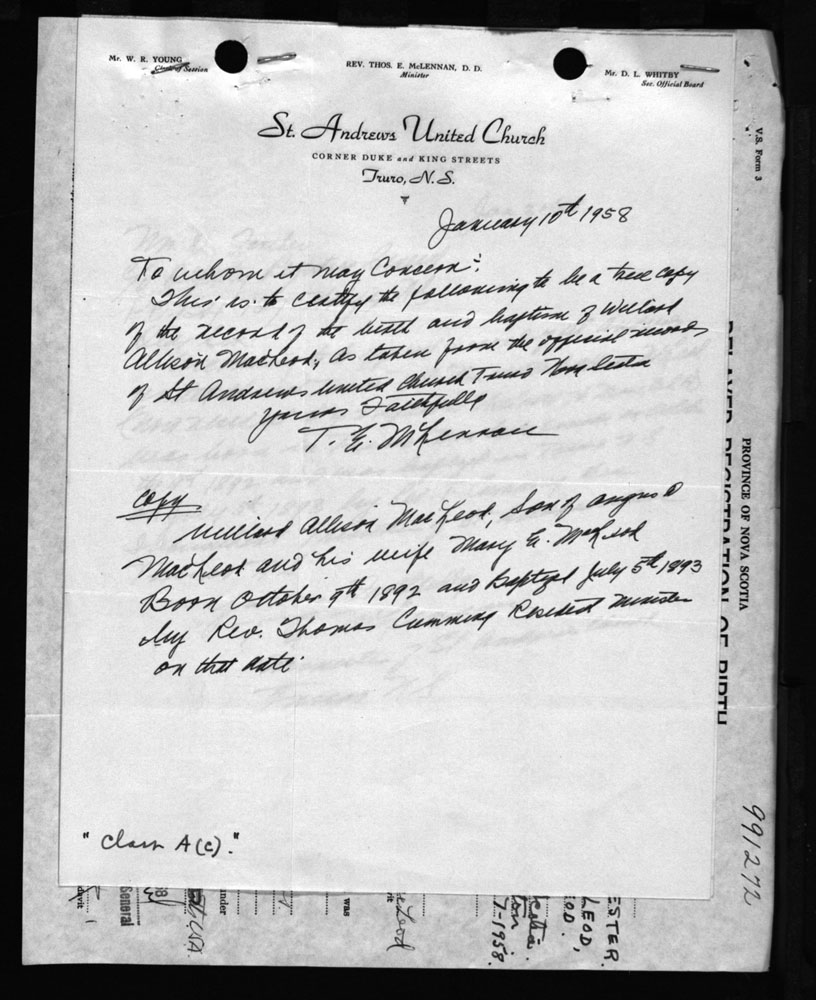 Mr. W. R. YOUNG
Clerk of Session
REV. THOS. E. McLENNAN, D. D.
Minister
Mr. D. L. WHITBY
Sec. Official Board
St. Andrews United Church
CORNER DUKE and KING STREETS
Truro, N. S.
January 10th 1958
To whom it may Concern:
This is to certify the following to be a true copy
of the record of the birth and baptism of Willard
Allison MacLeod, as taken from the official records
of St Andrews United Church Truro Nova Scotia
yours Faithfully
T. E. McLennan
Copy
Willard Allison MacLeod, Son of Angus D
MacLeod and his wife Mary E. McLeod
Born October 9th 1892 and baptized July 5th 1893
by Rev. Thomas Cumming Resident minister
on that date.
"Class A(c)."
V.S. Form 3
PROVINCE OF NOVA SCOTIA
DELAYED REGISTRATION OF BIRTH
991272
General
under
was
cLeod
7-1958.
ESTER
LEOD,
OD.